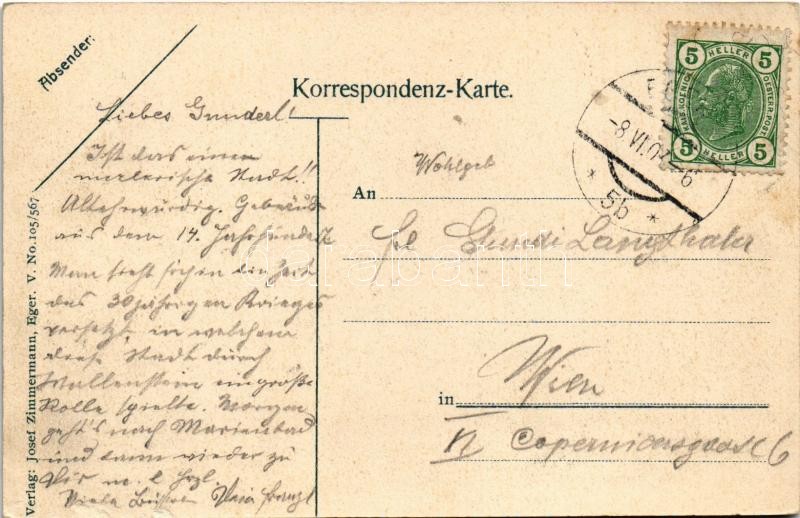 Absender:
Korrespondenz-Karte.
Liebes Gunderl!
Ist das eine
malerische Stadt!!
Altehrwürdig. Gebäude
aus dem 14. Jahrhundert
Man sieht sich in die Zeit
des 30 jährigen Krieges
versetzt, in welchem
diese Stadt durch
Wallenstein eine große
Rolle spielte. Morgen
geht's nach Marienbad
und dann wieder zu
Dir m. l.
Viele Dein Franzl
Verlag: Josef Zimmermann, Eger. V. No. 105/567
Wohlgeb
An
Gundi Langthaler
in Wien
Copernicusgasse 6
5 HELLER 5
KAIS. KOENIGL. OESTERR. POST
5 HELLER 5
-8 VI 6
* 5b *
darabanth